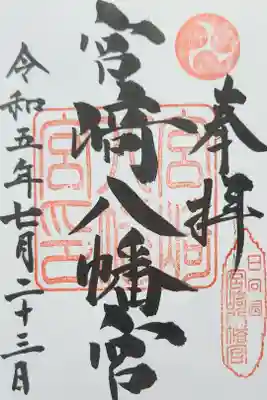 奉拝
宮崎八幡宮
令和五年七月二十三日
宮崎八幡宮印
日向国